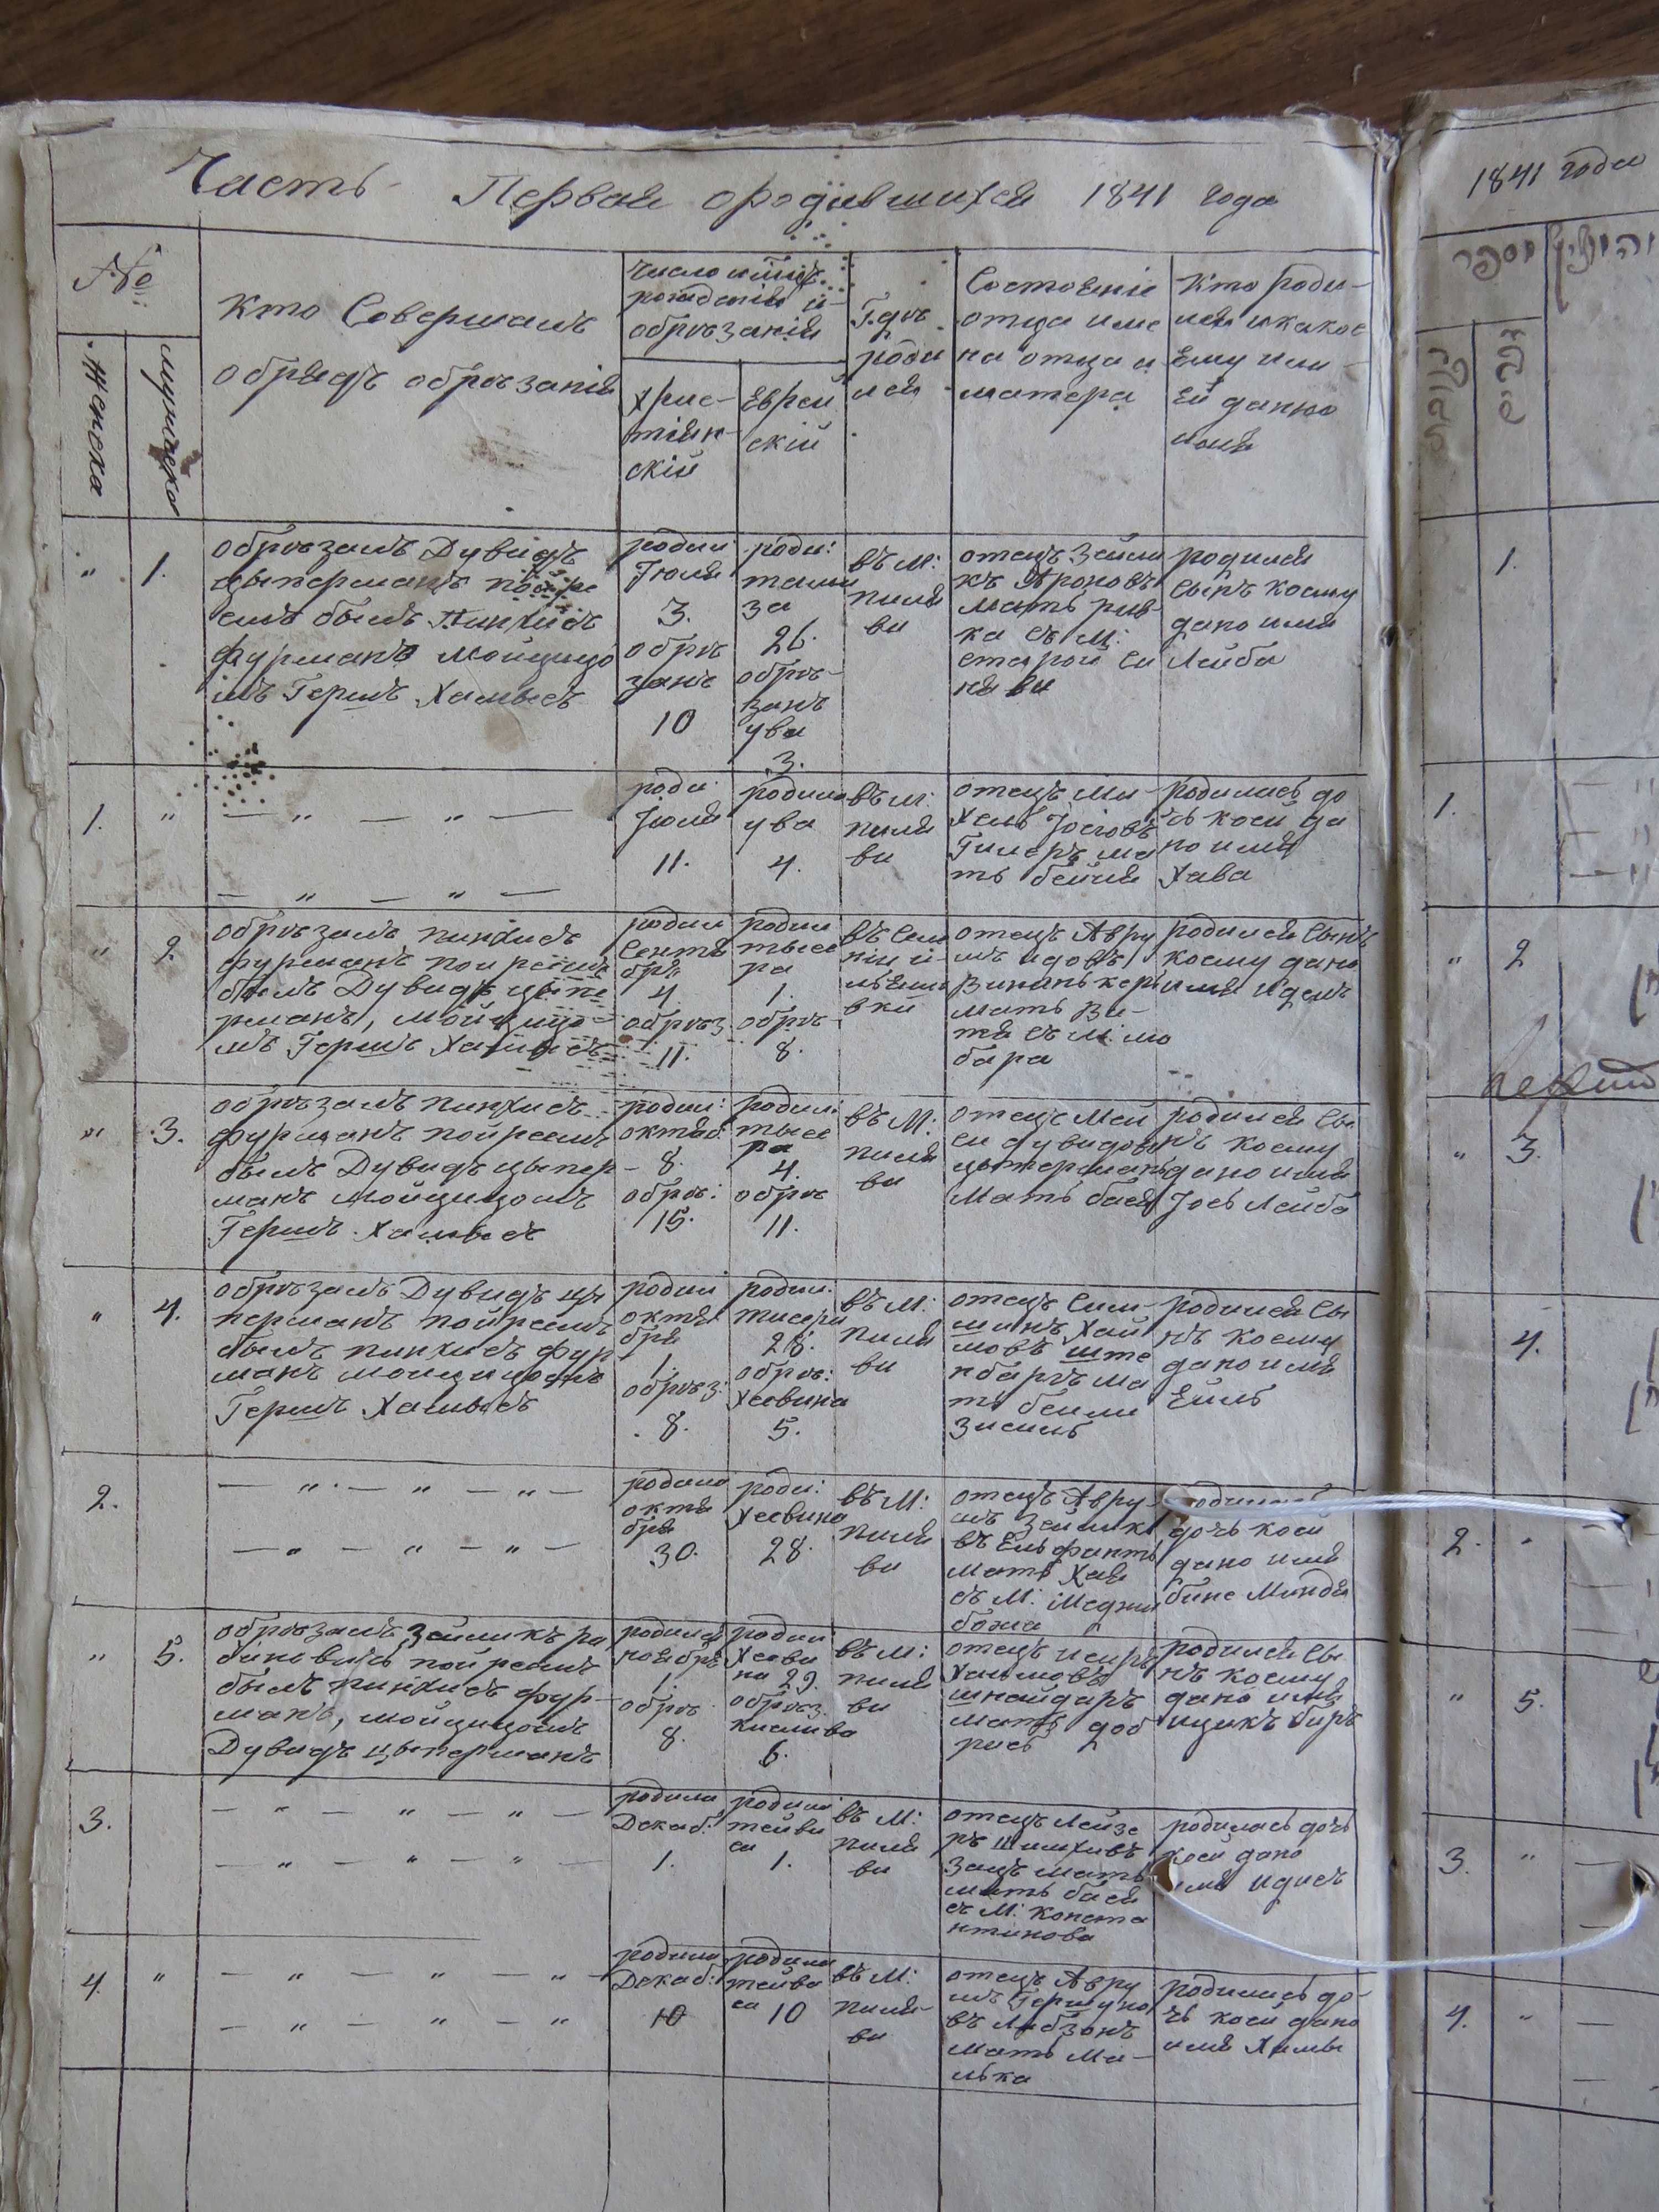 Часть Первая ородившихся 1841 года
№
Женска
мужеска
Кто Совершалъ
обрядъ обрѣзанія
число и
рожденія и
обрѣзанія
Хрис-
тіян-
скій
Еврей
скій
Гдѣ
роди
лся
Состояніе
отца име
на отца и
матера
Кто роди-
лся и какое
Ему или
Ей данно
имя
" 1.
обрѣзалъ Дувидъ
цыперманъ
былъ Пинхисъ
фурманъ мойцицо
мъ Гершъ Хамьесъ
родил
Іюля
3.
обрѣ
занъ
10
роди:
тамм
за
26.
обрѣ-
занъ
ува
3.
въ М:
пиля
ви
отецъ Зейли
къ Ароновъ
мать рив-
ка съ М:
старой си
нявы
родился
сынъ коему
дано имя
Лейба
1. "
— " — " —
— " — " —
роди
Іюля
11.
родила
ува
4.
въ М:
пиля
ви
отецъ Ми-
Хель Іосіовъ
Гилеръ ма
ть бейля
родилась до
чь коей да
но имя
Хава
" 2.
обрѣзалъ пинхисъ
фурманъ пойреемъ
былъ Дувидъ цыпе
рманъ, мойцицо-
мъ Гершъ Хамьесъ
родил
Сентя
бря
4
обрѣз.
11.
родил
тысе
ра
1.
обрѣ-
8.
въ
вки
отецъ Авру
мъ идовъ
мать
тя съ М: мо
бара
родился сынъ
коему дано
имя идель
" 3.
обрѣзалъ пинхисъ
фурманъ пойреемъ
былъ Дувидъ цыпер-
манъ мойцицомъ
Гершъ Хамьесъ
родил:
октяб:
8.
обрѣ:
15.
родил:
тысе
ра
4.
обрѣ
11.
въ М:
пиля
ви
отецъ Мой
си дувидов
цыперманъ
Мать бася
родился сы
нъ коему
дано имя
Іось Лейба
" 4.
обрѣзалъ Дувидъ цы
перманъ пойреемъ
былъ пинхисъ фур
манъ мойцицомъ
Гершъ Хамьесъ
родил
октя
бря
1.
обрѣз:
8.
родил.
тисера
28.
обрѣ:
Хесвина
5.
въ М:
пиля
ви
отецъ Сим-
шинъ Хаи
мовъ ште
нбаргъ ма
ть бейли
Зисиль
родился сы
нъ коему
дано имя
Ейль
2.
— " — " — " —
— " — " — " —
родила
октя
бря
30.
роди:
Хесвина
28.
въ М:
пиля
ви
отецъ Авру-
мъ Зейлико
въ Ельфантъ
мать Хая
съ М: Меджи
божа
родилась
дочь коей
дано имя
бине Миндя
" 5.
обрѣзалъ Зейликъ ра
биновичъ пойреемъ
былъ пинхисъ фур-
манъ, мойцицомъ
Дувидъ цыперманъ
родился
ноябрѣ
1.
обрѣ
8.
родил
Хесви
на 29.
обрѣз.
кислива
6.
въ М:
пиля
ви
отецъ исиръ
Хаимовъ
шнайдаръ
мать доб
рись
родился сы
нъ коему
дано имя
ицикъ биръ
3.
— " — " — " —
— " — " — " —
родила
Декаб:
1.
родил
тейви
са
1.
въ М:
пиля
ви
отецъ Лейзе
ръ Шимхивъ
Зацъ мать
мать бася
съ М: конста
нтинова
родилась дочь
коей дано
имя идись
4. "
— " — " — " —
— " — " — "
родила
Декаб:
10
родила
тейва
са 10
въ М:
пиля-
ви
отецъ Авру
мъ Гершуно
въ Либзонъ
мать Ма-
лька
родилась до-
чь коей дано
имя Химы
1841 года
מספר
1.
1.
" 2
" 3.
4.
2. "
" 5.
3. "
4. "